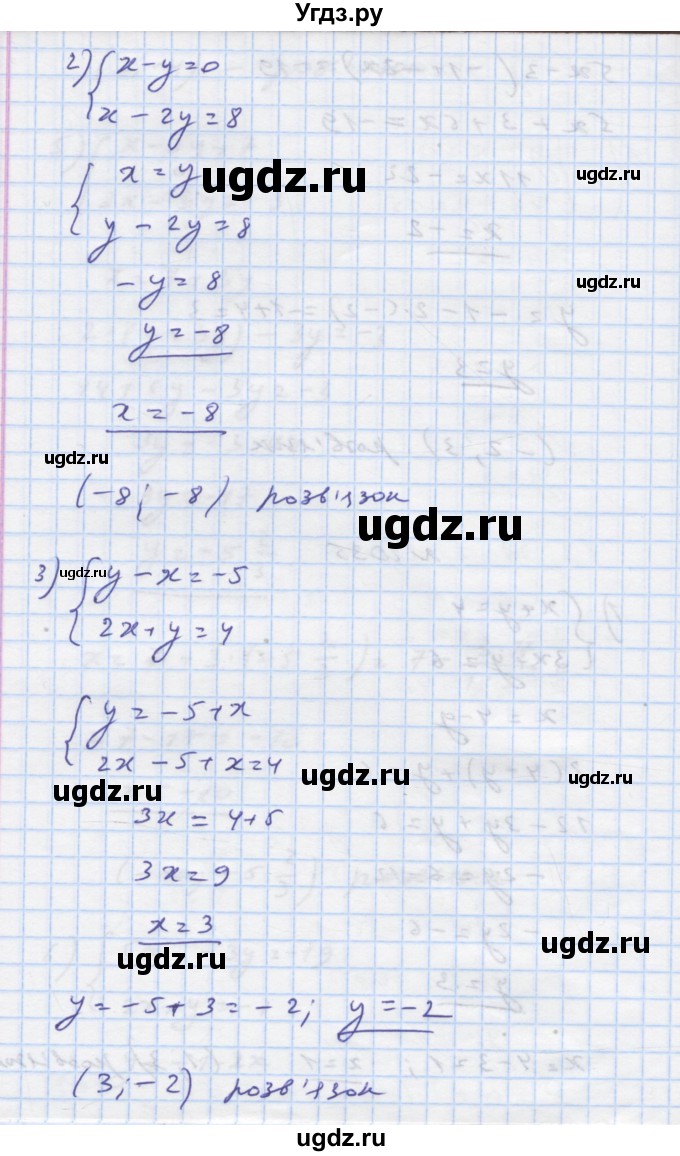 Угдз.ру
2) { x - y = 0
x - 2y = 8
{ x = y
ugdz.ru
ugdz.ru
y - 2y = 8
- y = 8
ugdz.ru
y = -8
x = -8
ugdz.ru
(-8; -8) розв'язок
ugdz.ru
3) { y - x = -5
ugdz.ru
2x + y = 4
{ y = -5 + x
2x - 5 + x = 4
ugdz.ru
ugdz.ru
3x = 4 + 5
3x = 9
x = 3
ugdz.ru
ugdz.ru
y = -5 + 3 = -2; y = -2
(3; -2) розв'язок
ugdz.ru